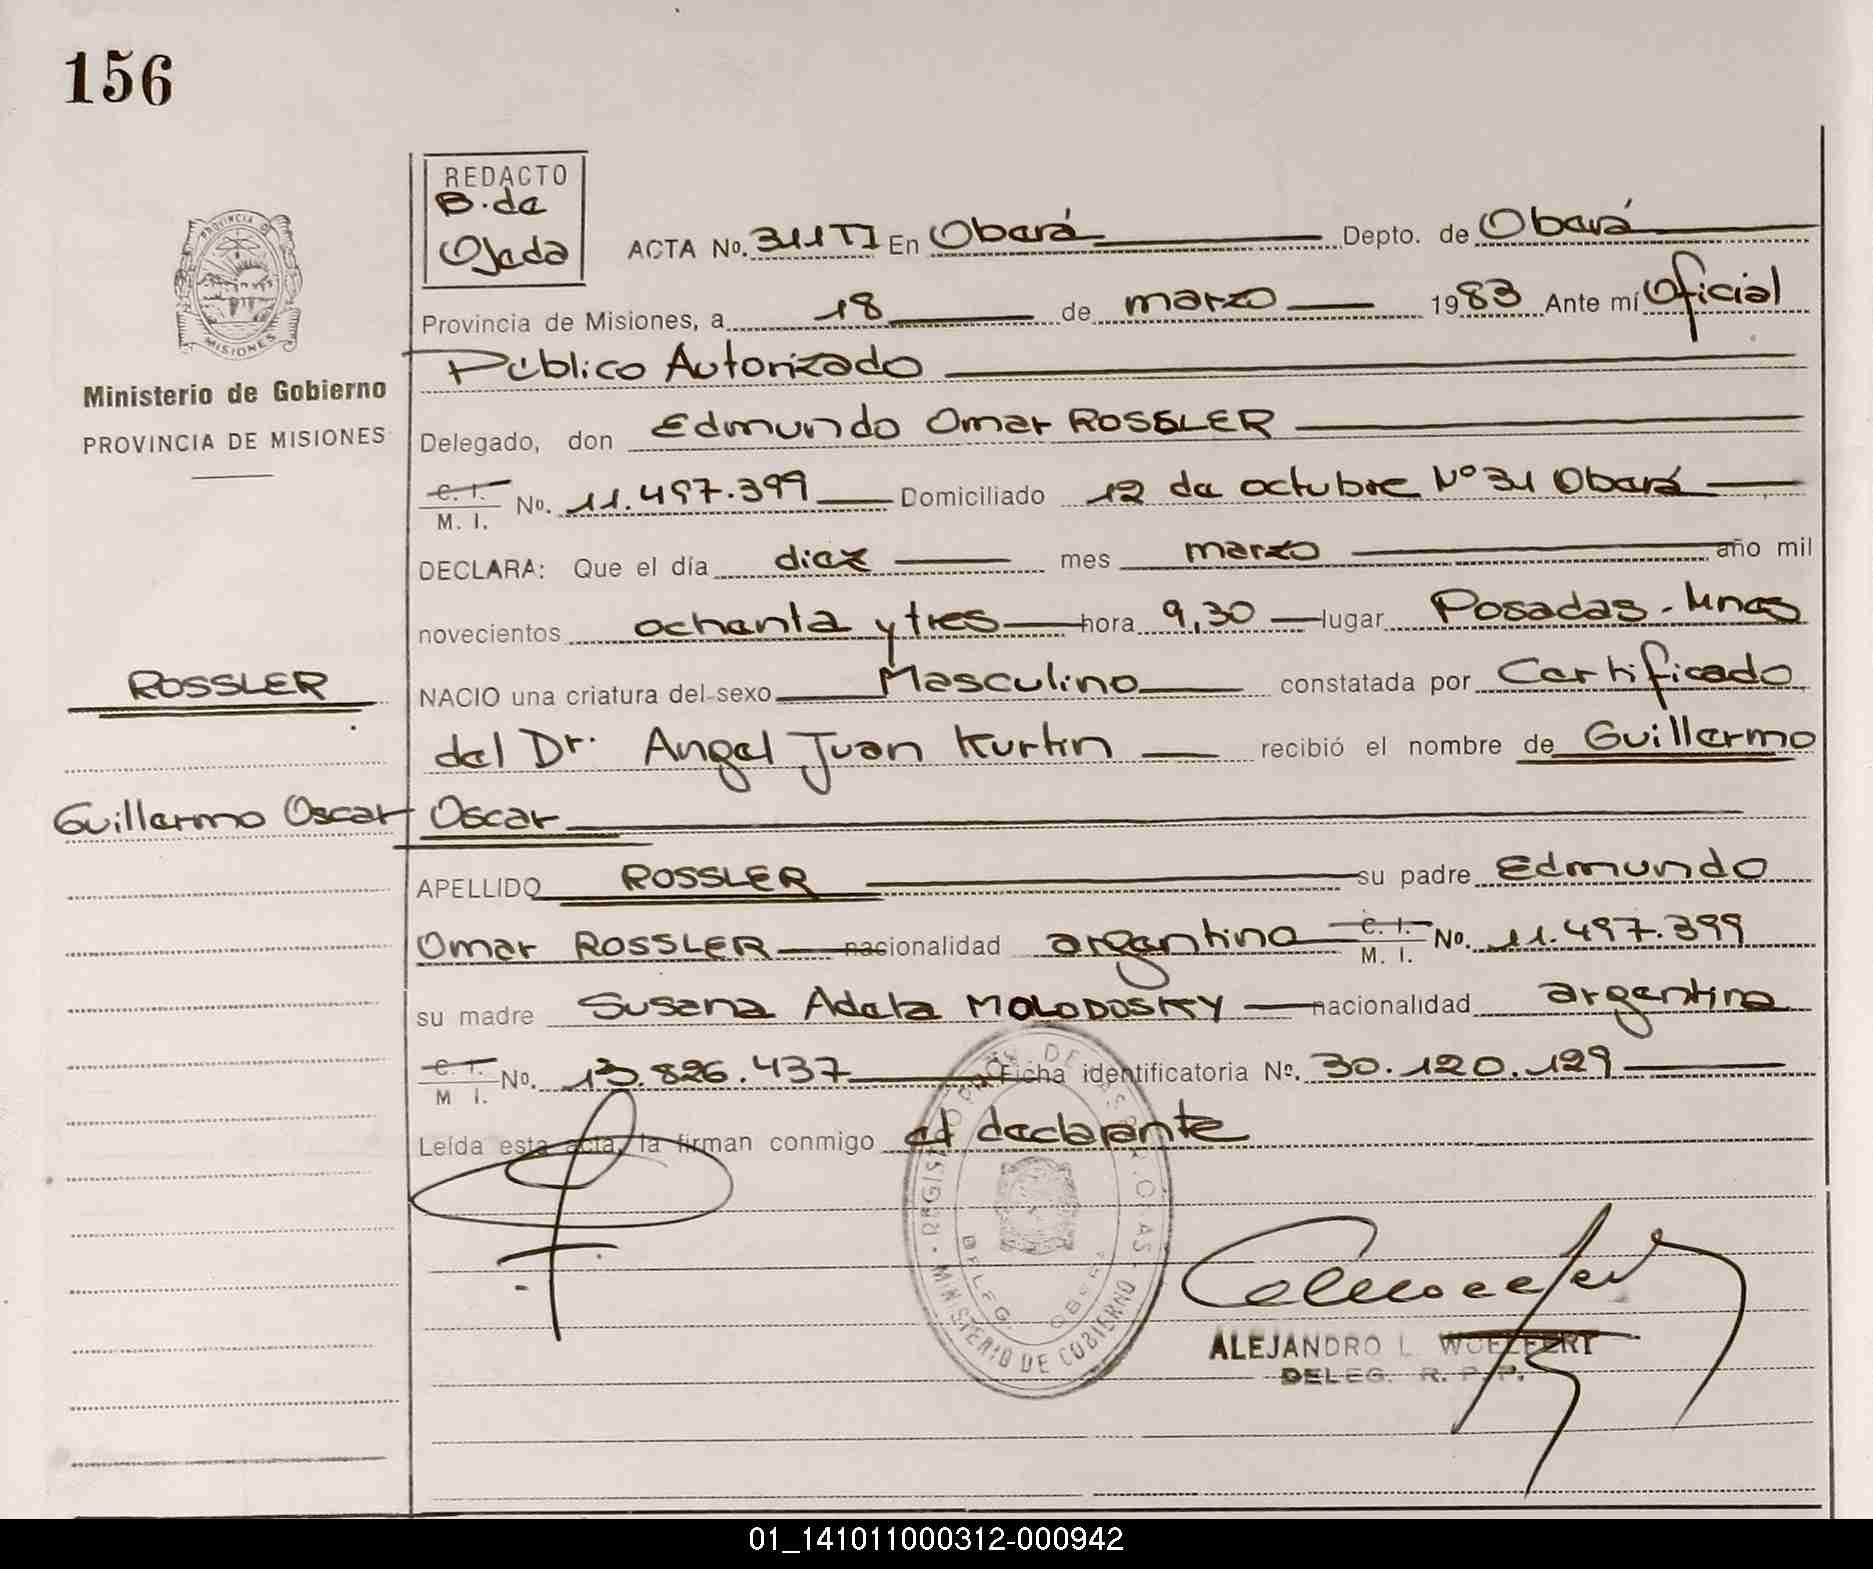 156
REDACTO
B. de
Ojeda
PROVINCIA D
MISIONES
Ministerio de Gobierno
PROVINCIA DE MISIONES
ACTA No. 311TI En Oberá Depto. de Oberá
Provincia de Misiones, a 18 de marzo 1983 Ante mí Oficial
Público Autorizado
Delegado, don Edmundo Omar ROSSLER
C. I.
M. I. No. 11.497.399 Domiciliado 12 de octubre Nº 31 Oberá
DECLARA: Que el día diez mes marzo año mil
novecientos ochenta y tres hora 9,30 lugar Posadas - Mnes
ROSSLER
NACIO una criatura del sexo Masculino constatada por Certificado
del Dr. Angel Juan Kurtin recibió el nombre de Guillermo
Guillermo Oscar
Oscar
APELLIDO ROSSLER su padre Edmundo
Omar ROSSLER nacionalidad argentino C. I. M. I. No. 11.497.399
su madre Susana Adela MOLODOSKY nacionalidad argentina
C. I.
M I. No. 13.826.437 Ficha identificatoria No. 30.120.129
Leída esta acta, la firman conmigo el declarante
REGIS
MINISTERIO DE GOBIERNO
DELEG. OBERA
ALEJANDRO L. WOELFERT
DELEG. R. P. P.
01_141011000312-000942